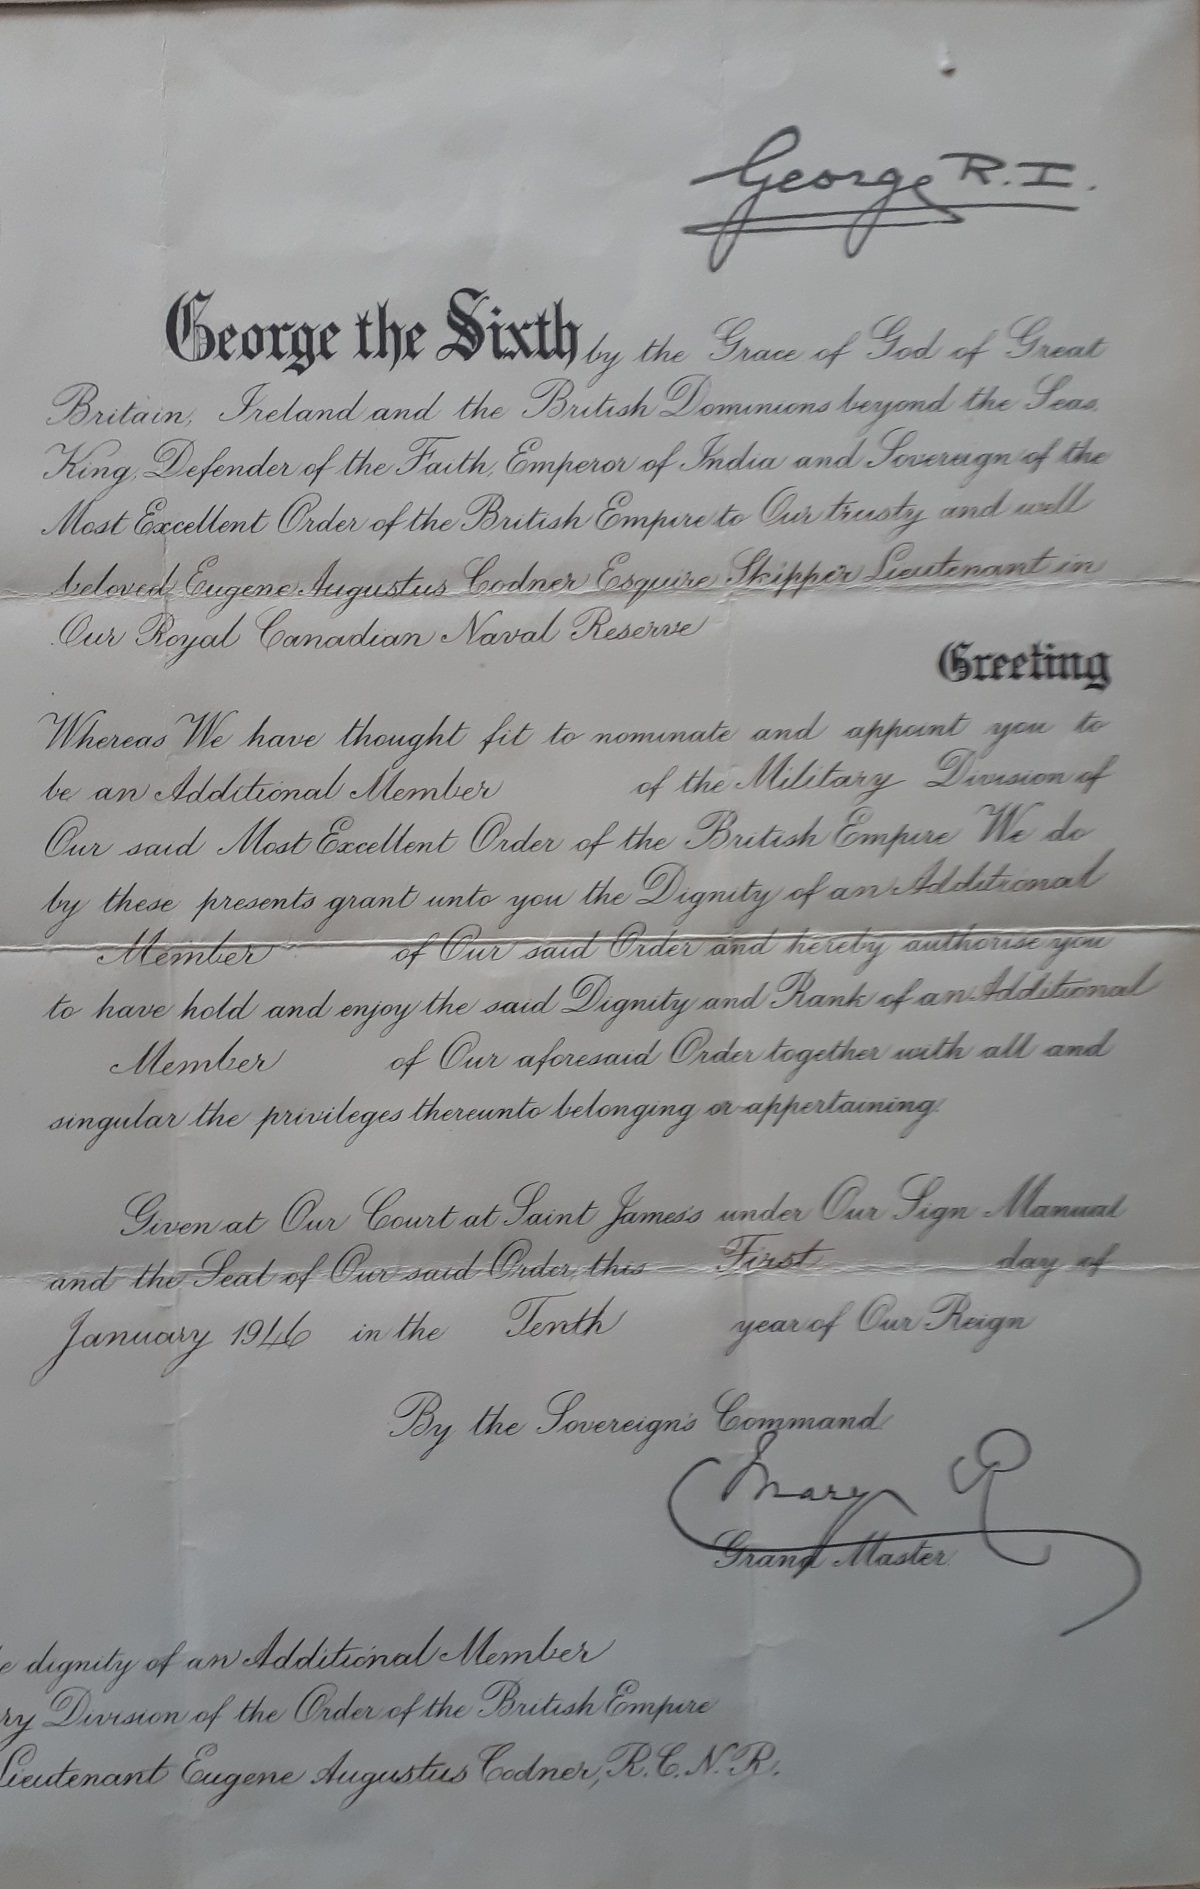 George R.I.
George the Sixth by the Grace of God of Great
Britain, Ireland and the British Dominions beyond the Seas,
King, Defender of the Faith, Emperor of India and Sovereign of the
Most Excellent Order of the British Empire to Our trusty and well
beloved Eugene Augustus Codner Esquire Skipper Lieutenant in
Our Royal Canadian Naval Reserve
Greeting
Whereas We have thought fit to nominate and appoint you to
be an Additional Member of the Military Division of
Our said Most Excellent Order of the British Empire We do
by these presents grant unto you the Dignity of an Additional
Member of Our said Order and hereby authorise you
to have hold and enjoy the said Dignity and Rank of an Additional
Member of Our aforesaid Order together with all and
singular the privileges thereunto belonging or appertaining.
Given at Our Court at Saint James's under Our Sign Manual
and the Seal of Our said Order, this First day of
January 1946 in the Tenth year of Our Reign
By the Sovereign's Command.
Mary R
Grand Master.
e dignity of an Additional Member
ry Division of the Order of the British Empire
Lieutenant Eugene Augustus Codner, R.C.N.R.